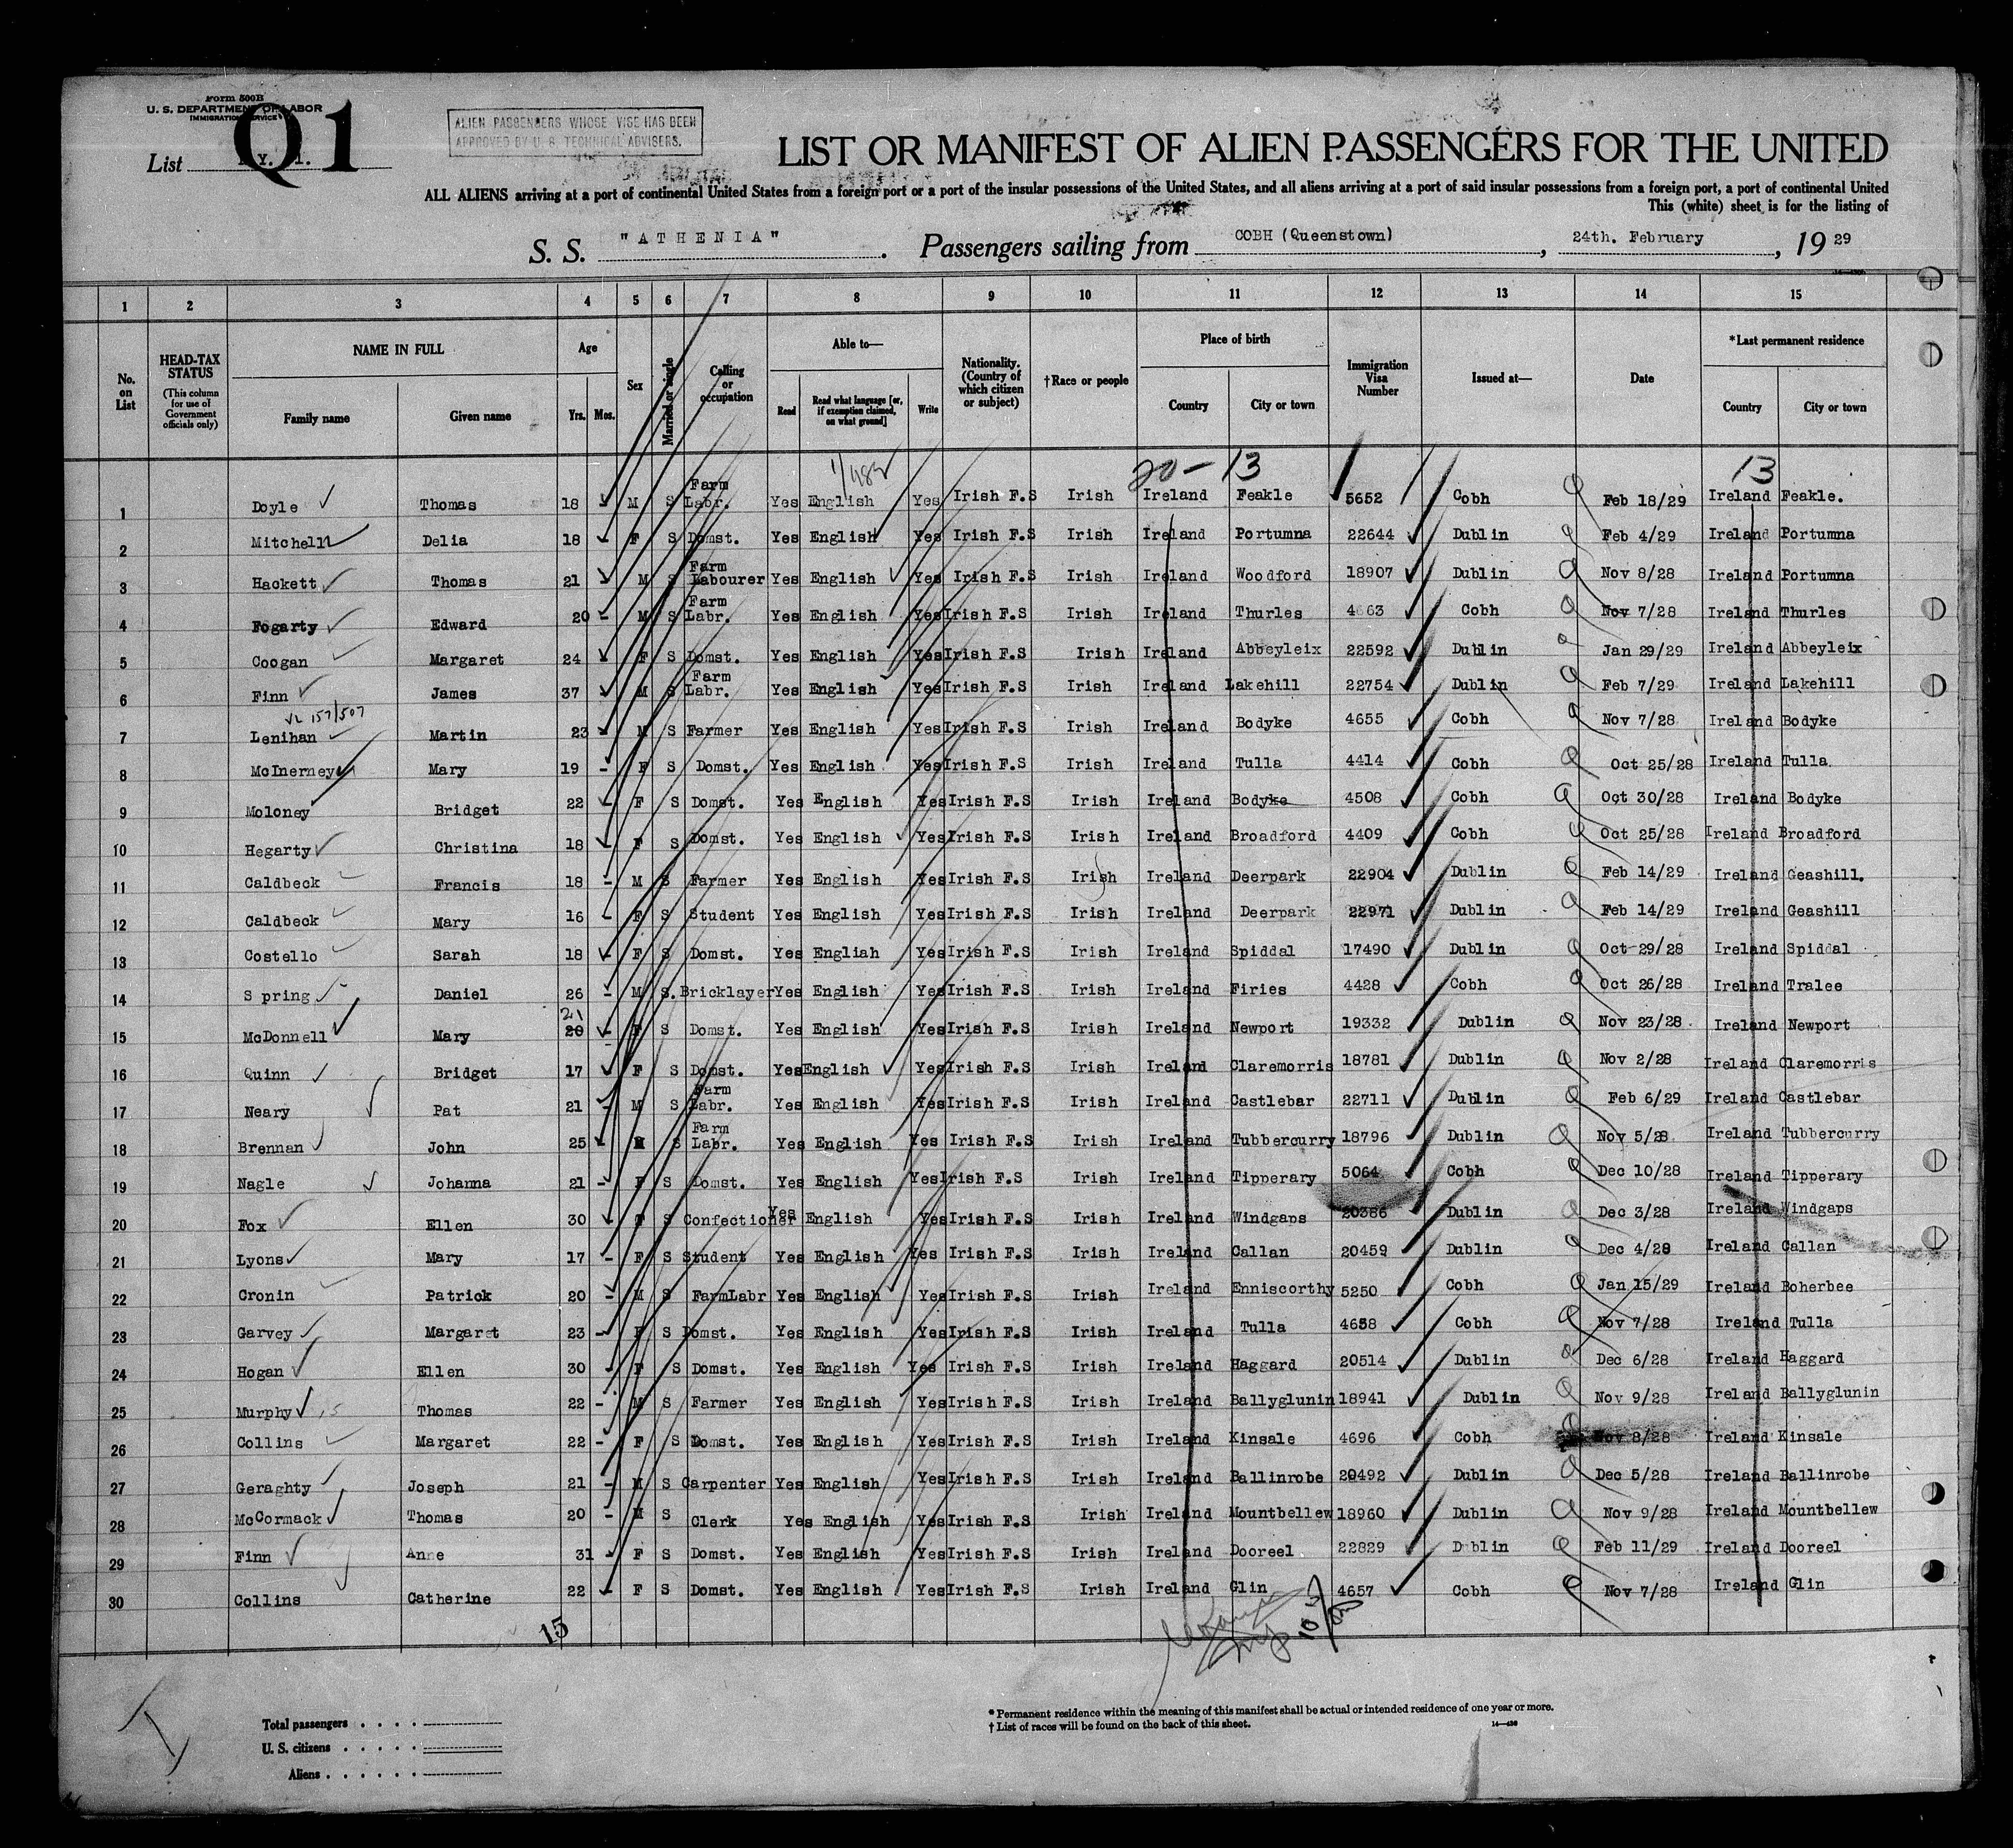 Form 500B
U. S. DEPARTMENT OF LABOR
IMMIGRATION SERVICE
Q1
List
ALIEN PASSENGERS WHOSE VISE HAS BEEN
APPROVED BY U. S. TECHNICAL ADVISERS.
LIST OR MANIFEST OF ALIEN PASSENGERS FOR THE UNITED
ALL ALIENS arriving at a port of continental United States from a foreign port or a port of the insular possessions of the United States, and all aliens arriving at a port of said insular possessions from a foreign port, a port of continental United
This (white) sheet is for the listing of
S. S. "ATHENIA". Passengers sailing from COBH (Queenstown), 24th. February, 19 29
1 2 3 4 5 6 7 8 9 10 11 12 13 14 15
No. on List
HEAD-TAX STATUS (This column for use of Government officials only)
NAME IN FULL Family name Given name
Age Yrs. Mos.
Sex
Married or single
Calling or occupation
Able to— Read Read what language [or, if exemption claimed, on what ground] Write
Nationality. (Country of which citizen or subject)
†Race or people
Place of birth Country City or town
Immigration Visa Number
Issued at—
Date
*Last permanent residence Country City or town
20-13 13
1 Doyle Thomas 18 M S Farm Labr. Yes English Yes Irish F.S Irish Ireland Feakle 5652 Cobh Feb 18/29 Ireland Feakle.
2 Mitchell Delia 18 F S Domst. Yes English Yes Irish F.S Irish Ireland Portumna 22644 Dublin Feb 4/29 Ireland Portumna
3 Hackett Thomas 21 M S Farm Labourer Yes English Yes Irish F.S Irish Ireland Woodford 18907 Dublin Nov 8/28 Ireland Portumna
4 Fogarty Edward 20 - M S Farm Labr. Yes English Yes Irish F.S Irish Ireland Thurles 4663 Cobh Nov 7/28 Ireland Thurles
5 Coogan Margaret 24 F S Domst. Yes English Yes Irish F.S Irish Ireland Abbeyleix 22592 Dublin Jan 29/29 Ireland Abbeyleix
6 Finn James 37 M S Farm Labr. Yes English Yes Irish F.S Irish Ireland Lakehill 22754 Dublin Feb 7/29 Ireland Lakehill
7 Lenihan Martin 23 M S Farmer Yes English Yes Irish F.S Irish Ireland Bodyke 4655 Cobh Nov 7/28 Ireland Bodyke
8 McInerney Mary 19 - F S Domst. Yes English Yes Irish F.S Irish Ireland Tulla 4414 Cobh Oct 25/28 Ireland Tulla
9 Moloney Bridget 22 - F S Domst. Yes English Yes Irish F.S Irish Ireland Bodyke 4508 Cobh Oct 30/28 Ireland Bodyke
10 Hegarty Christina 18 - F S Domst. Yes English Yes Irish F.S Irish Ireland Broadford 4409 Cobh Oct 25/28 Ireland Broadford
11 Caldbeck Francis 18 - M S Farmer Yes English Yes Irish F.S Irish Ireland Deerpark 22904 Dublin Feb 14/29 Ireland Geashill.
12 Caldbeck Mary 16 - F S Student Yes English Yes Irish F.S Irish Ireland Deerpark 22971 Dublin Feb 14/29 Ireland Geashill
13 Costello Sarah 18 - F S Domst. Yes Engliah Yes Irish F.S Irish Ireland Spiddal 17490 Dublin Oct 29/28 Ireland Spiddal
14 S pring Daniel 26 - M S. Bricklayer Yes English Yes Irish F.S Irish Ireland Firies 4428 Cobh Oct 26/28 Ireland Tralee
21
15 McDonnell Mary 20 - F S Domst. Yes English Yes Irish F.S Irish Ireland Newport 19332 Dublin Nov 23/28 Ireland Newport
16 Quinn Bridget 17 - F S Domst. Yes English Yes Irish F.S Irish Ireland Claremorris 18781 Dublin Nov 2/28 Ireland Claremorris
17 Neary Pat 21 - M S Farm Labr. Yes English Yes Irish F.S Irish Ireland Castlebar 22711 Dublin Feb 6/29 Ireland Castlebar
18 Brennan John 25 - M S Farm Labr. Yes English Yes Irish F.S Irish Ireland Tubbercurry 18796 Dublin Nov 5/28 Ireland Tubbercurry
19 Nagle Johanna 21 - F S Domst. Yes English Yes Irish F.S Irish Ireland Tipperary 5064 Cobh Dec 10/28 Ireland Tipperary
20 Fox Ellen 30 - F S Confectioner Yes English Yes Irish F.S Irish Ireland Windgaps 20386 Dublin Dec 3/28 Ireland Windgaps
21 Lyons Mary 17 - F S Student Yes English Yes Irish F.S Irish Ireland Callan 20459 Dublin Dec 4/28 Ireland Callan
22 Cronin Patrick 20 - M S FarmLabr Yes English Yes Irish F.S Irish Ireland Enniscorthy 5250 Cobh Jan 15/29 Ireland Boherbee
23 Garvey Margaret 23 - F S Domst. Yes English Yes Irish F.S Irish Ireland Tulla 4658 Cobh Nov 7/28 Ireland Tulla
24 Hogan Ellen 30 - F S Domst. Yes English Yes Irish F.S Irish Ireland Haggard 20514 Dublin Dec 6/28 Ireland Haggard
25 Murphy Thomas 22 - M S Farmer Yes English Yes Irish F.S Irish Ireland Ballyglunin 18941 Dublin Nov 9/28 Ireland Ballyglunin
26 Collins Margaret 22 - F S Domst. Yes English Yes Irish F.S Irish Ireland Kinsale 4696 Cobh Nov 8/28 Ireland Kinsale
27 Geraghty Joseph 21 - M S Carpenter Yes English Yes Irish F.S Irish Ireland Ballinrobe 20492 Dublin Dec 5/28 Ireland Ballinrobe
28 McCormack Thomas 20 - M S Clerk Yes English Yes Irish F.S Irish Ireland Mountbellew 18960 Dublin Nov 9/28 Ireland Mountbellew
29 Finn Anne 31 - F S Domst. Yes English Yes Irish F.S Irish Ireland Dooreel 22829 Dublin Feb 11/29 Ireland Dooreel
30 Collins Catherine 22 - F S Domst. Yes English Yes Irish F.S Irish Ireland Glin 4657 Cobh Nov 7/28 Ireland Glin
15
Total passengers . . . .
U. S. citizens . . . . .
Aliens . . . . . .
* Permanent residence within the meaning of this manifest shall be actual or intended residence of one year or more.
† List of races will be found on the back of this sheet.